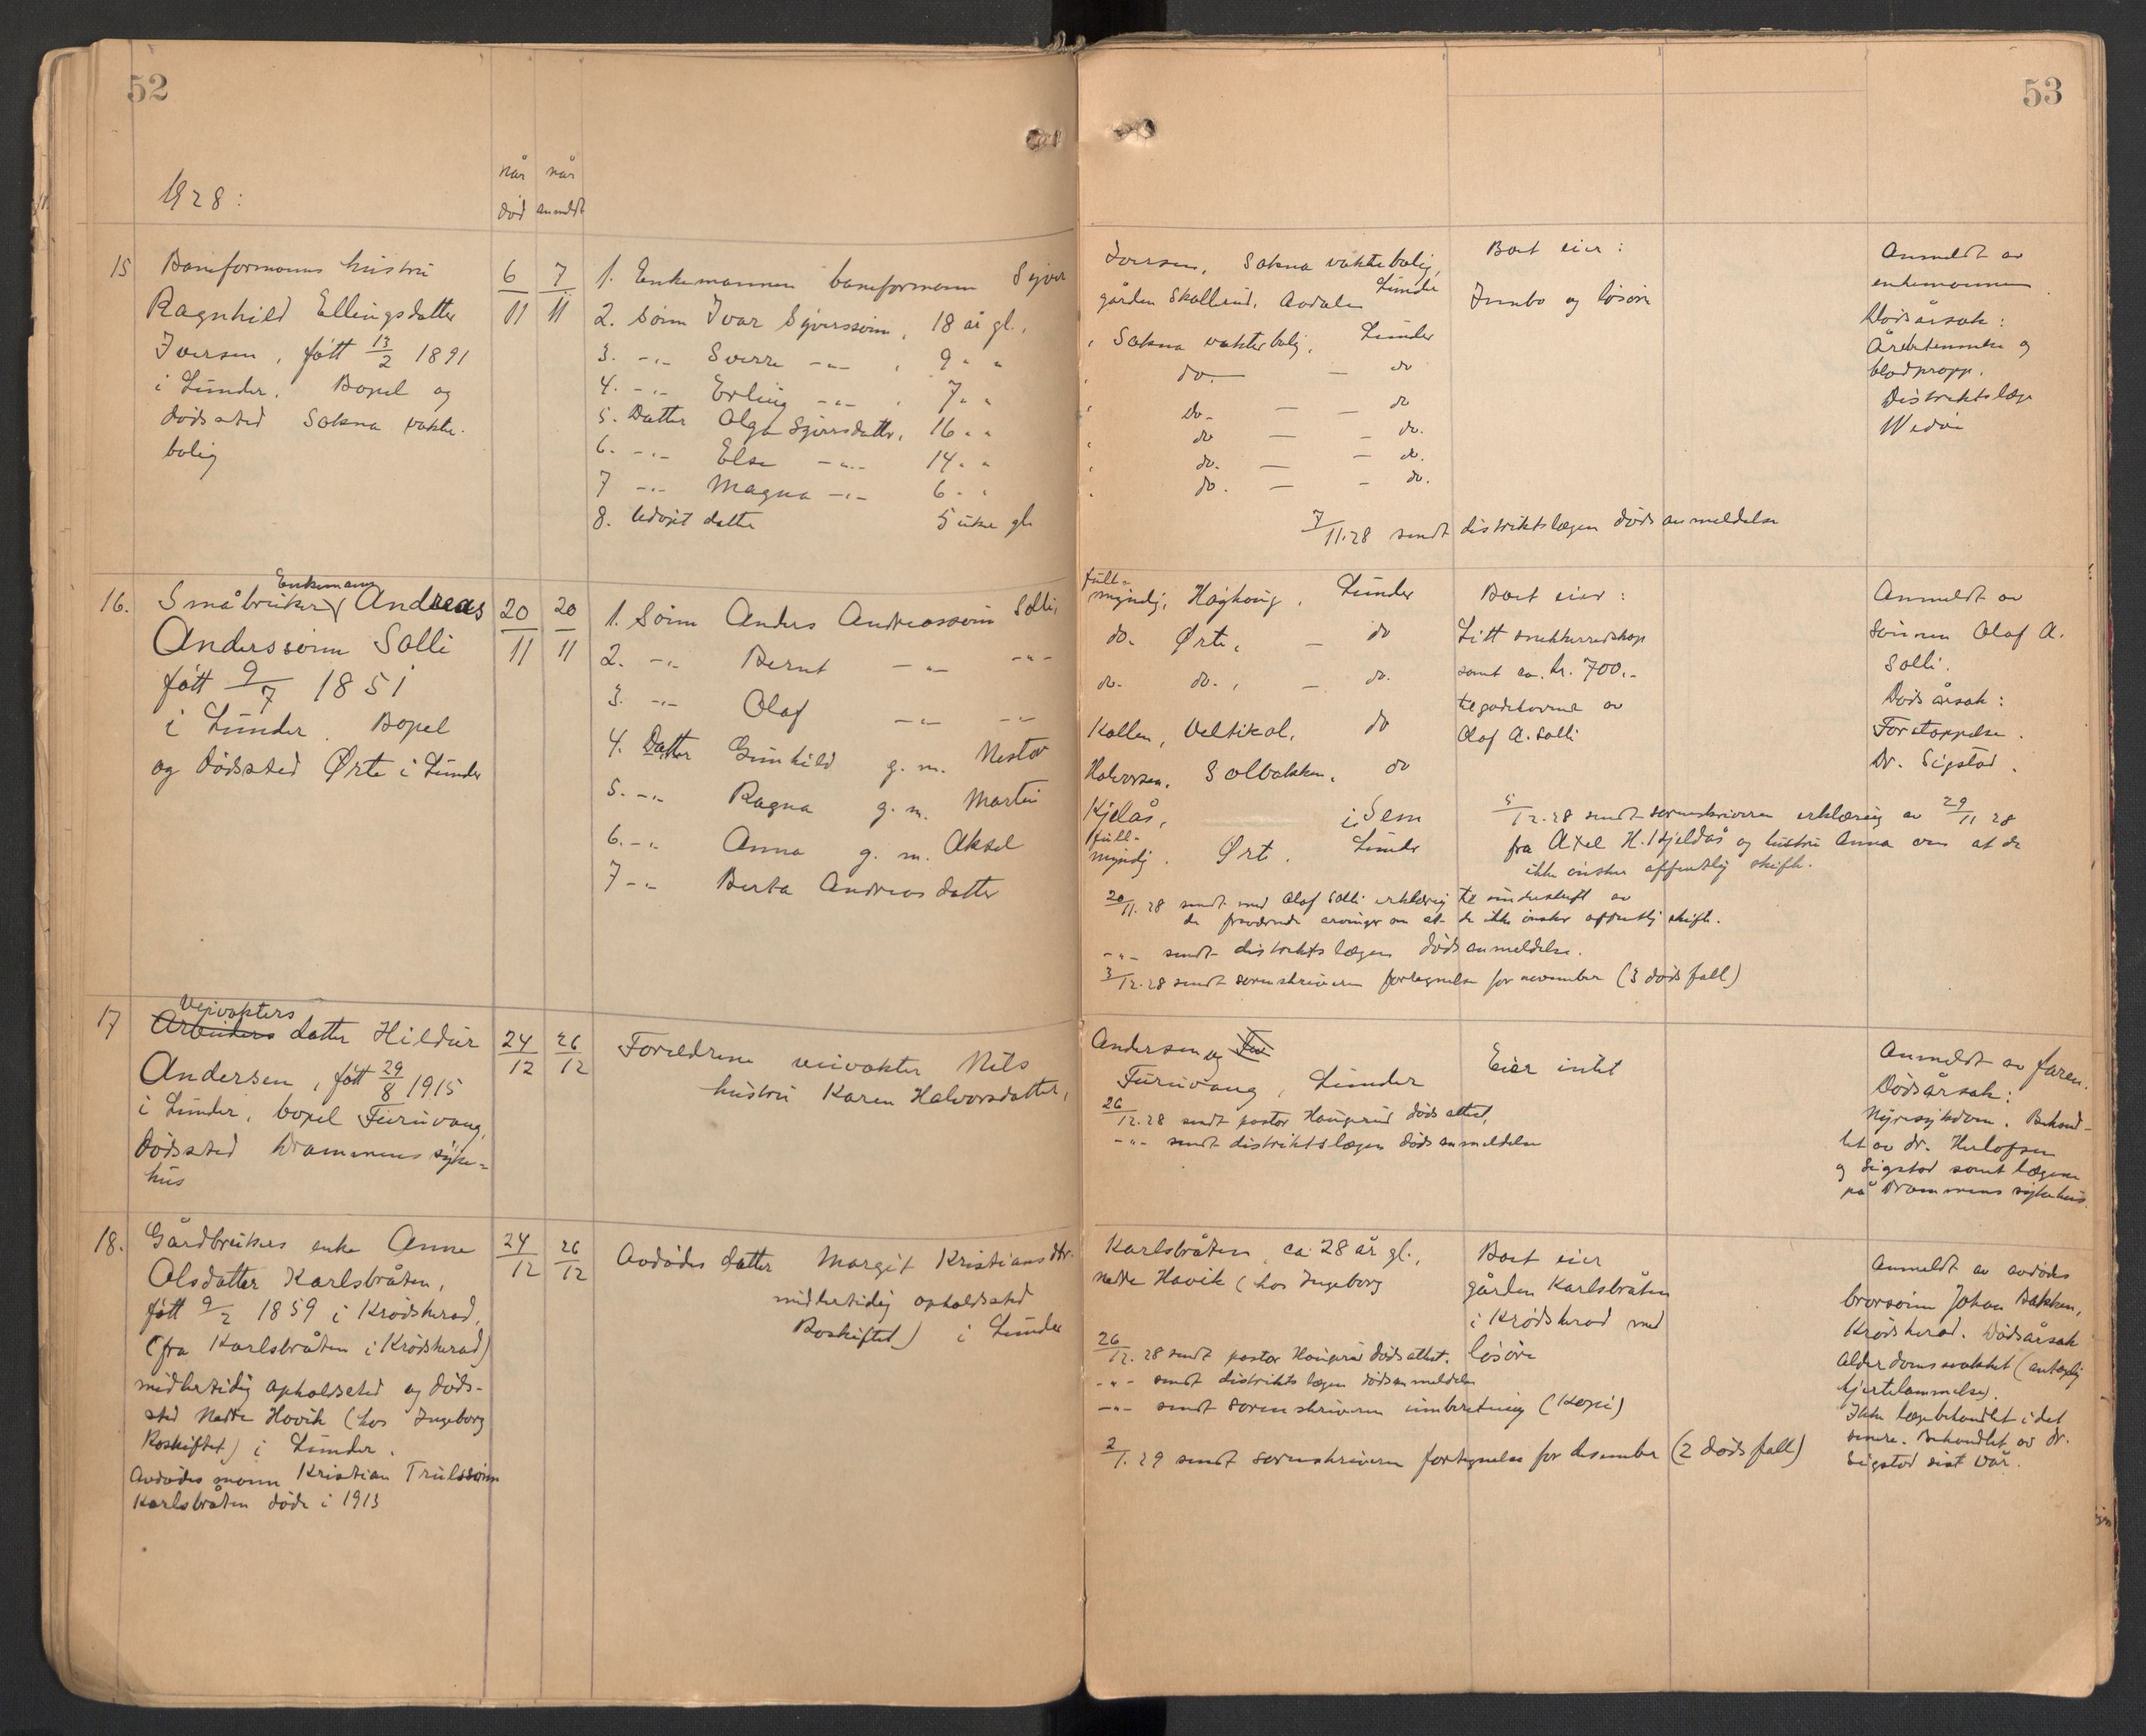 52
1928:
når når
død anmeldt
15 Baneformanns hustru
Ragnhild Ellingsdatter
Iversen, født 13/2 1891
i Lunder. Bopel og
dødssted Sokna vokter-
bolig
6/11 7/11
1. Enkemannen baneformann Syver
2. Sønn Ivar Syverssønn, 18 år gl.,
3. -"- Sverre -"- , 9 " "
4. -"- Erling -"- , 7 " "
5. Datter Olga Syversdatter, 16 " "
6. -"- Else -"- 14 " "
7 -"- Magna -"- 6 " "
8. Udøpt datter 5 uker gl.
16. Småbruker Enkemann Andreas
Anderssønn Solli
født 9/7 1851
i Lunder. Bopel
og dødssted Ørte i Lunder
20/11 20/11
1. Sønn Anders Andreassønn Solli,
2. -"- Bernt -"- -"-
3. -"- Olaf -"- -"-
4. Datter Gunhild g. m. Nestor
5. -"- Ragna g. m. Martin
6. -"- Anna g. m. Aksel
7 -"- Berta Andreasdatter
17 Veivokters
Arbeiders datter Hildur
Andersen, født 29/8 1915
i Lunder, bopel Furuvang,
Dødssted Drammens syke-
hus
24/12 26/12
Foreldrene veivokter Nils
hustru Karen Halvorsdatter,
18. Gårdbrukers enke Anne
Olsdatter Karlsbråten,
født 9/2 1859 i Krødsherad,
(fra Karlsbråten i Krødsherad)
midlertidig opholdssted og døds-
sted Nedre Hovik (hos Ingeborg
Roskiftet) i Lunder.
Avdødes mann Kristian Trulssønn
Karlsbråten døde i 1913
24/12 26/12
Avdødes datter Margit Kristiansdtr.
midlertidig opholdssted
Roskiftet) i Lunder
53
Iversen, Sokna vokterbolig,
Lunder
gården Skollerud, Aadalen
, Sokna vokterbolig, Lunder
, do. — do
, do. — — do
, do — — do.
, do. — — do.
, do. — — do.
Boet eier:
Innbo og løsøre
7/11.28 sendt distriktslægen dødsanmeldelse
Anmeldt av
enkemannen.
Dødsårsak:
Årebetennelse og
blodpropp.
Distriktslæge
full-
myndig, Høghaug, Lunder
do. Ørte, — do
do. do., — do.
Kollen, Veltikol, do
Halvorsen, Solbakken, do
Kjelås, i Sem
full-
myndig. Ørte. Lunder
Boet eier:
Litt snekkerredskap
samt ca. kr. 700.-
tilgodehavende av
Olaf A. Solli
5/12.28 sendt sorenskriveren erklæring av 29/11 28
fra Axel H. Kjeldås og hustru Anna om at de
ikke ønsker offentlig skifte.
20/11.28 sendt med Olaf Solli erklæring til underskrift av
de fraværende arvinger om at de ikke ønsker offentlig skifte.
-"- sendt distriktslægen dødsanmeldelse.
3/12.28 sendt sorenskriveren fortegnelse for november (3 dødsfall)
Anmeldt av
sønnen Olaf A.
Solli.
Dødsårsak:
Forstoppelse.
Dr. Sigstad.
Andersen og
Furuvang, Lunder
26/12.28 sendt pastor Haugerud dødsattest,
-"- sendt distriktslægen dødsanmeldelse
Eier intet
Anmeldt av faren.
Dødsårsak:
Nyresykdom. Behand-
let av dr. Herlofsen
og Sigstad samt lægene
på Drammens sykehus.
Karlsbråten, ca. 28 år gl.,
nedre Hovik (hos Ingeborg
26/12.28 sendt pastor Haugerud dødsattest.
-"- sendt distriktslægen dødsanmeldelse
-"- sendt sorenskriveren innberetning (Kopi)
2/1.29 sendt sorenskriveren fortegnelse for desember (2 dødsfall)
Boet eier
gården Karlsbråten
i Krødsherad med
løsøre
Anmeldt av avdødes
brorsønn Johan Bakken,
Krødsherad. Dødsårsak
Alderdomssvakhet (antagelig
hjertelammelse).
Ikke lægebehandlet i det
senere. Behandlet av dr.
Sigstad sist vår.